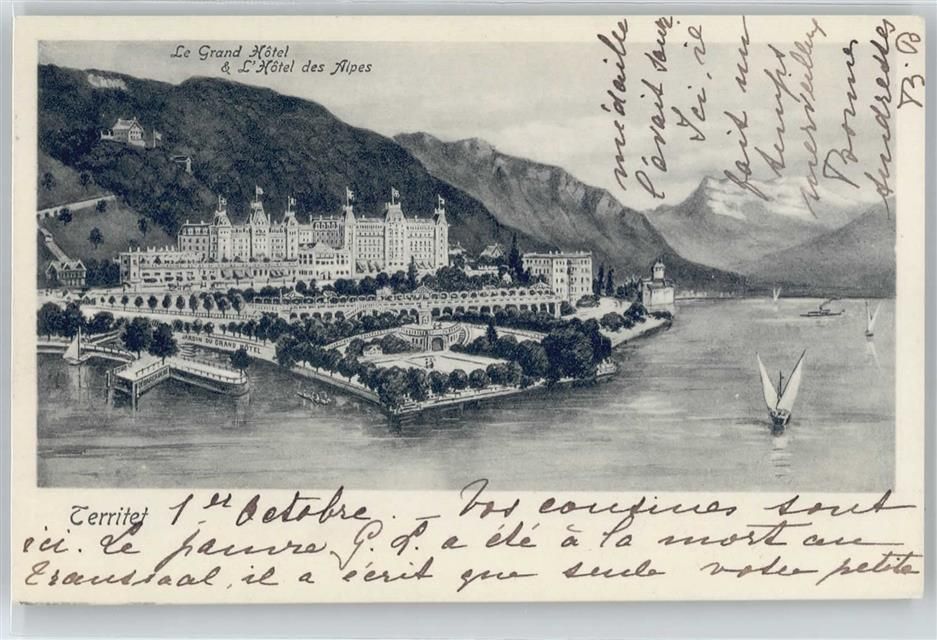 Le Grand Hôtel
& L'Hôtel des Alpes
JARDIN DU GRAND HÔTEL
Territet 1er Octobre. - Vos cousines sont
ici. Le pauvre G. L. a été à la mort au
Transvaal, il a écrit que seule votre petite
médaille
l'avait sauvé
Ici, il
fait un
temps
merveilleux
Bonne
tendresses
B. B